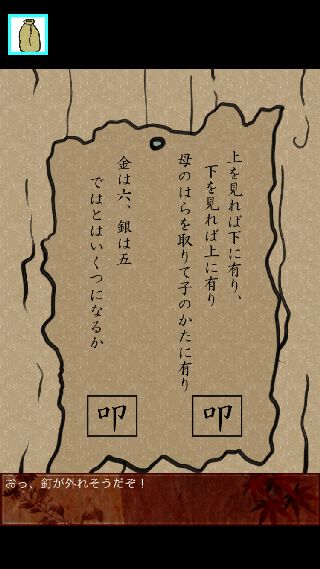 上を見れば下に有り、
下を見れば上に有り
母のはらを取りて子のかたに有り
金は六、銀は五
ではとはいくつになるか
叩
叩
おっ、釘が外れそうだぞ！